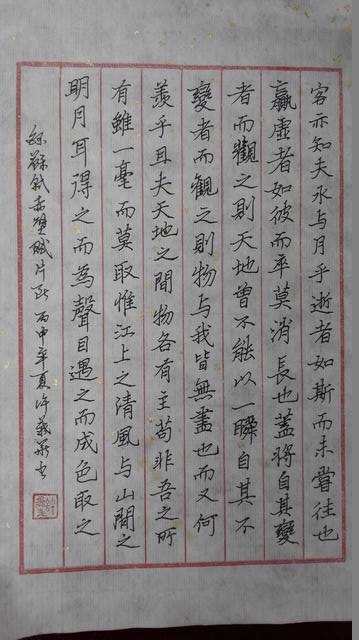 客亦知夫水与月乎逝者如斯而未嘗往也
贏虛者如彼而卒莫消長也蓋將自其變
者而觀之則天地曾不能以一瞬自其不
變者而觀之則物与我皆無盡也而又何
羨乎且夫天地之間物各有主苟非吾之所
有雖一毫而莫取惟江上之清風与山間之
明月耳得之而為聲目遇之而成色取之
錄蘇軾赤壁賦片段 丙申年夏許